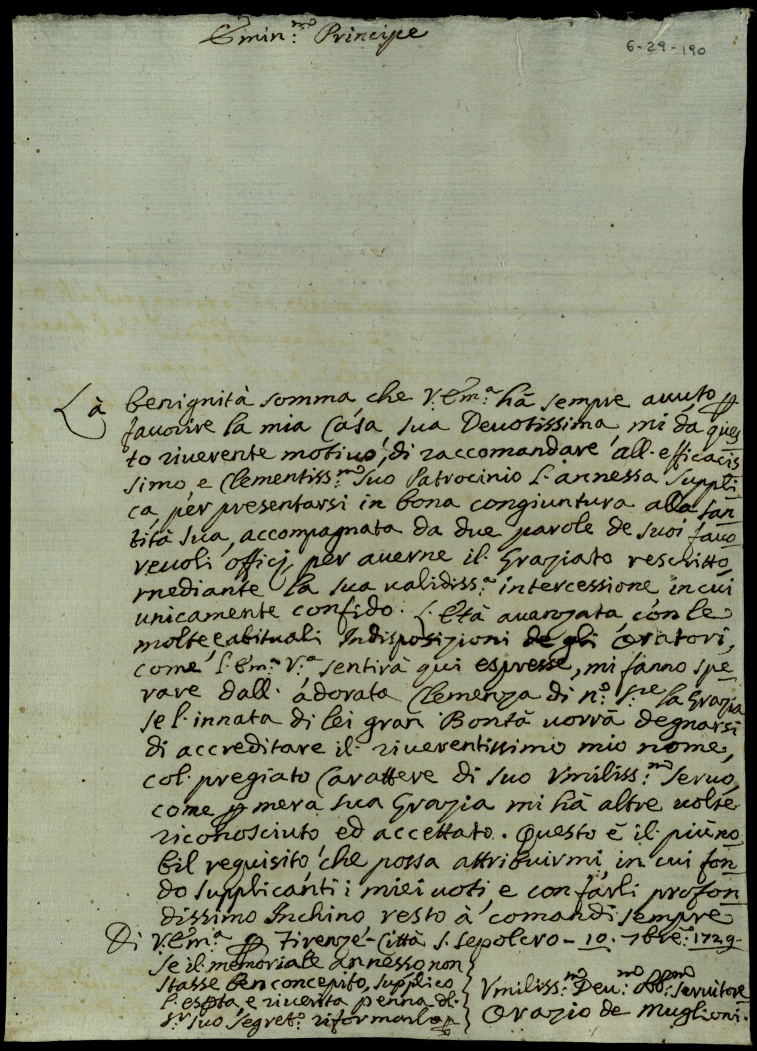 Emin:mo Principe
6-29-190
Là benignità somma che V. Em:a hà sempre auuto p
fauorire la mia Casa sua Deuotissima mi dà ques
to riuerente motiuo, di raccomandare all'efficacis
simo e Clementiss:mo suo Patrocinio l'annessa suppli
ca per presentarsi in bona congiuntura alla san
tità sua, accompagnata da due parole de suoi fauo
reuoli officj, per auerne il Graziato rescritto
mediante la sua ualidiss:a intercessione in cui
unicamente confido. L'Età auanzata, con le
molte e abituali Indisposizioni degli Oratori,
come l'Em:a V:a sentirà qui espresse, mi fanno spe
rare dall'adorata Clemenza di n:o S:re la Grazia
se l'innata di lei gran Bontà uorrà degnarsi
di accreditare il riuerentissimo mio nome,
col pregiato Carattere di suo Vmiliss:mo seruo,
come p mera sua Grazia mi hà altre uolte
riconosciuto ed accettato. Questo è il più no
bil requisito, che possa attribuirmi, in cui fon
do supplicanti i miei uoti, e con farli profon
dissimo Inchino resto à comandi sempre
Di V. Em:a p Firenze-Città S. Sepolcro - 10. 7bre: 1729
se il memoriale annesso non
stasse ben concepito, supplico
l'esperta e riuerita penna del
S:r suo Segret:o riformarlo
Vmiliss:mo Deu:mo Obb:mo seruitore
Orazio de Muglioni.